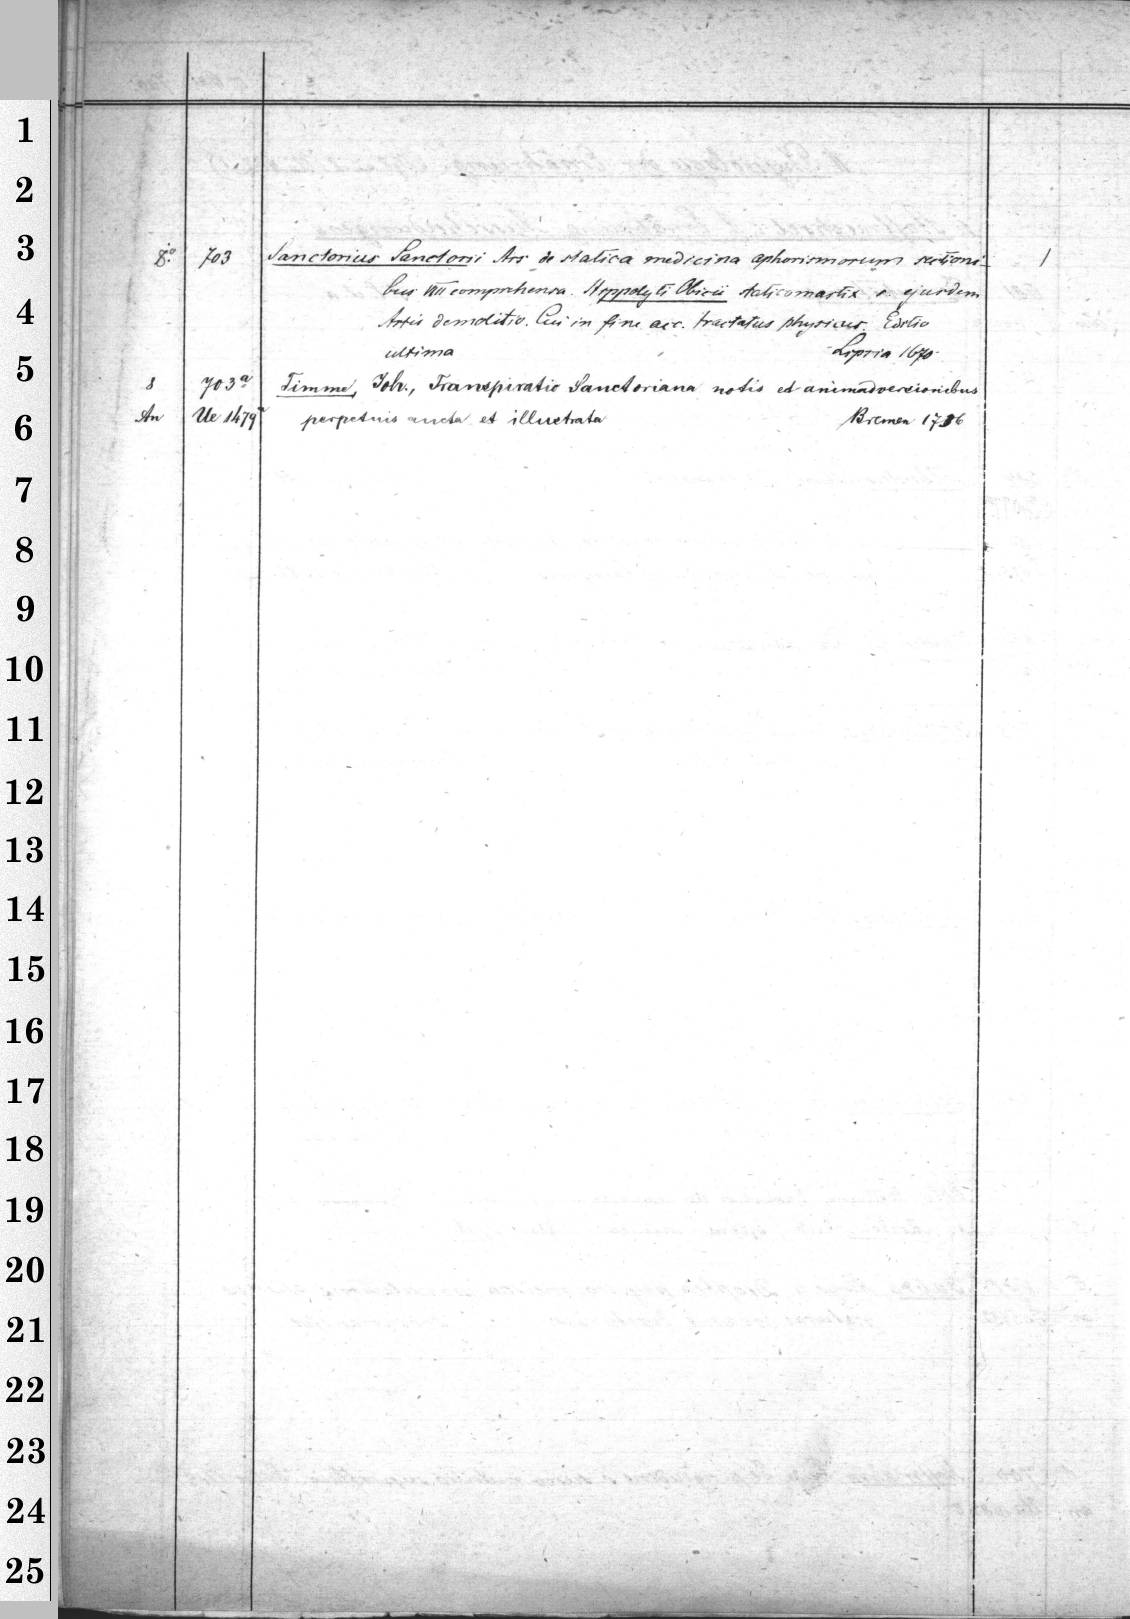 1
2
3
4
5
6
7
8
9
10
11
12
13
14
15
16
17
18
19
20
21
22
23
24
25
8° 703 Sanctorius Sanctorii Ars de statica medicina aphorismorum sectioni- 1
bus VIII comprehensa. Hyppolyti Obicii staticomastix s. ejusdem
Artis demolitio. Cui in fine acc. tractatus physicus. Editio
ultima Lipsia 1670
8 703a Timme, Joh., Transpiratio Sanctoriana notis et animadversionibus
An Ue 1479a perpetuis aucta et illustrata Bremen